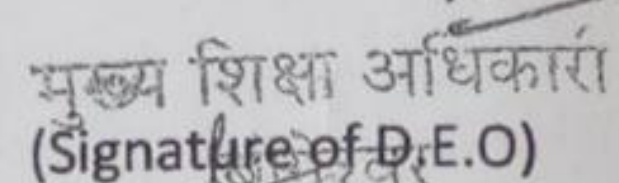 मुख्य शिक्षा अधिकारी
(Signature of D.E.O)